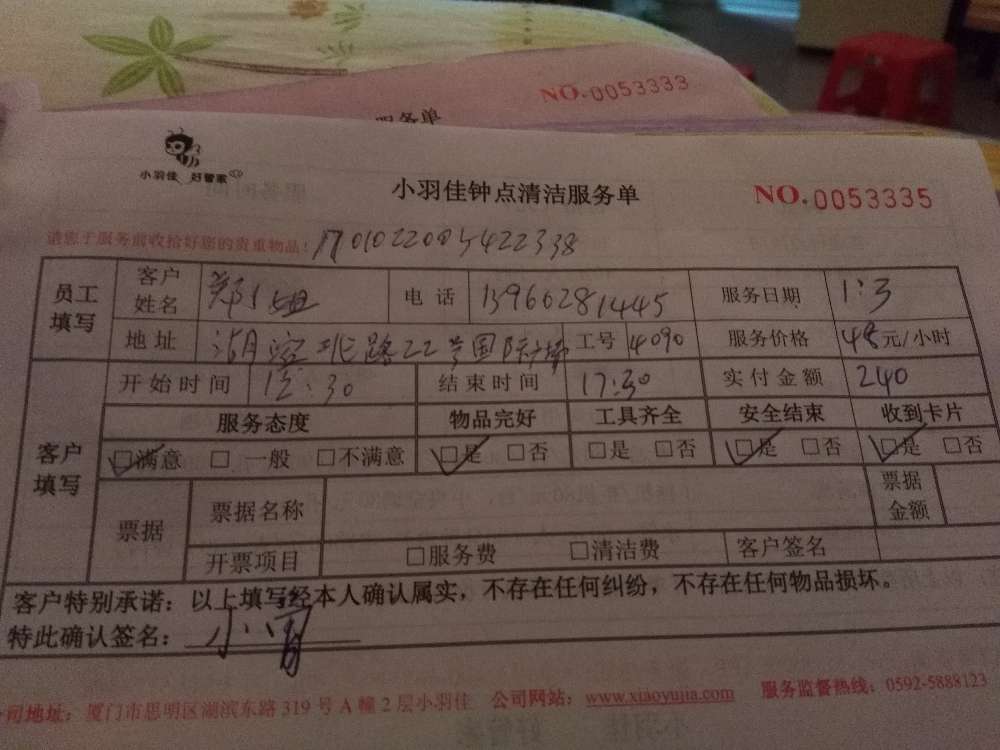 NO.0053333
服务单
小羽佳 好管家
小羽佳钟点清洁服务单
NO.0053335
请您于服务前收拾好您的贵重物品!
员工填写 客户姓名 郑小姐 电话 13960281445 服务日期 1:3
地址 22号国际 工号 4090 服务价格 48元/小时
客户填写 开始时间 12:30 结束时间 17:30 实付金额 240
服务态度 物品完好 工具齐全 安全结束 收到卡片
☑满意 □一般 □不满意 ☑是 □否 □是 □否 ☑是 □否 ☑是 □否
票据 票据名称 票据金额
开票项目 □服务费 □清洁费 客户签名
客户特别承诺：以上填写经本人确认属实，不存在任何纠纷，不存在任何物品损坏。
特此确认签名：
公司地址：厦门市思明区湖滨东路319号A幢2层小羽佳 公司网站：www.xiaoyujia.com 服务监督热线：0592-5888123